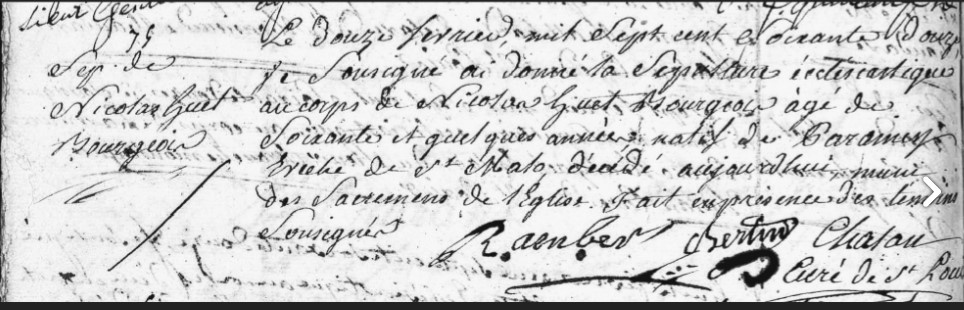 75
Sep. de
Nicolas huet
Bourgeois
Le douze fevrier, mil sept cent soixante douze
je soussigné ai donné la Sepulture écclesiastique
au corps de Nicolas huet Bourgeois âgé de
Soixante et quelques années, natif de Paramé
Evêché de St Malo, décédé aujourdhui, muni
des Sacremens de l'Eglise. fait en présence des témoins
Soussignés
Bertin Chalan
Curé de St Louis